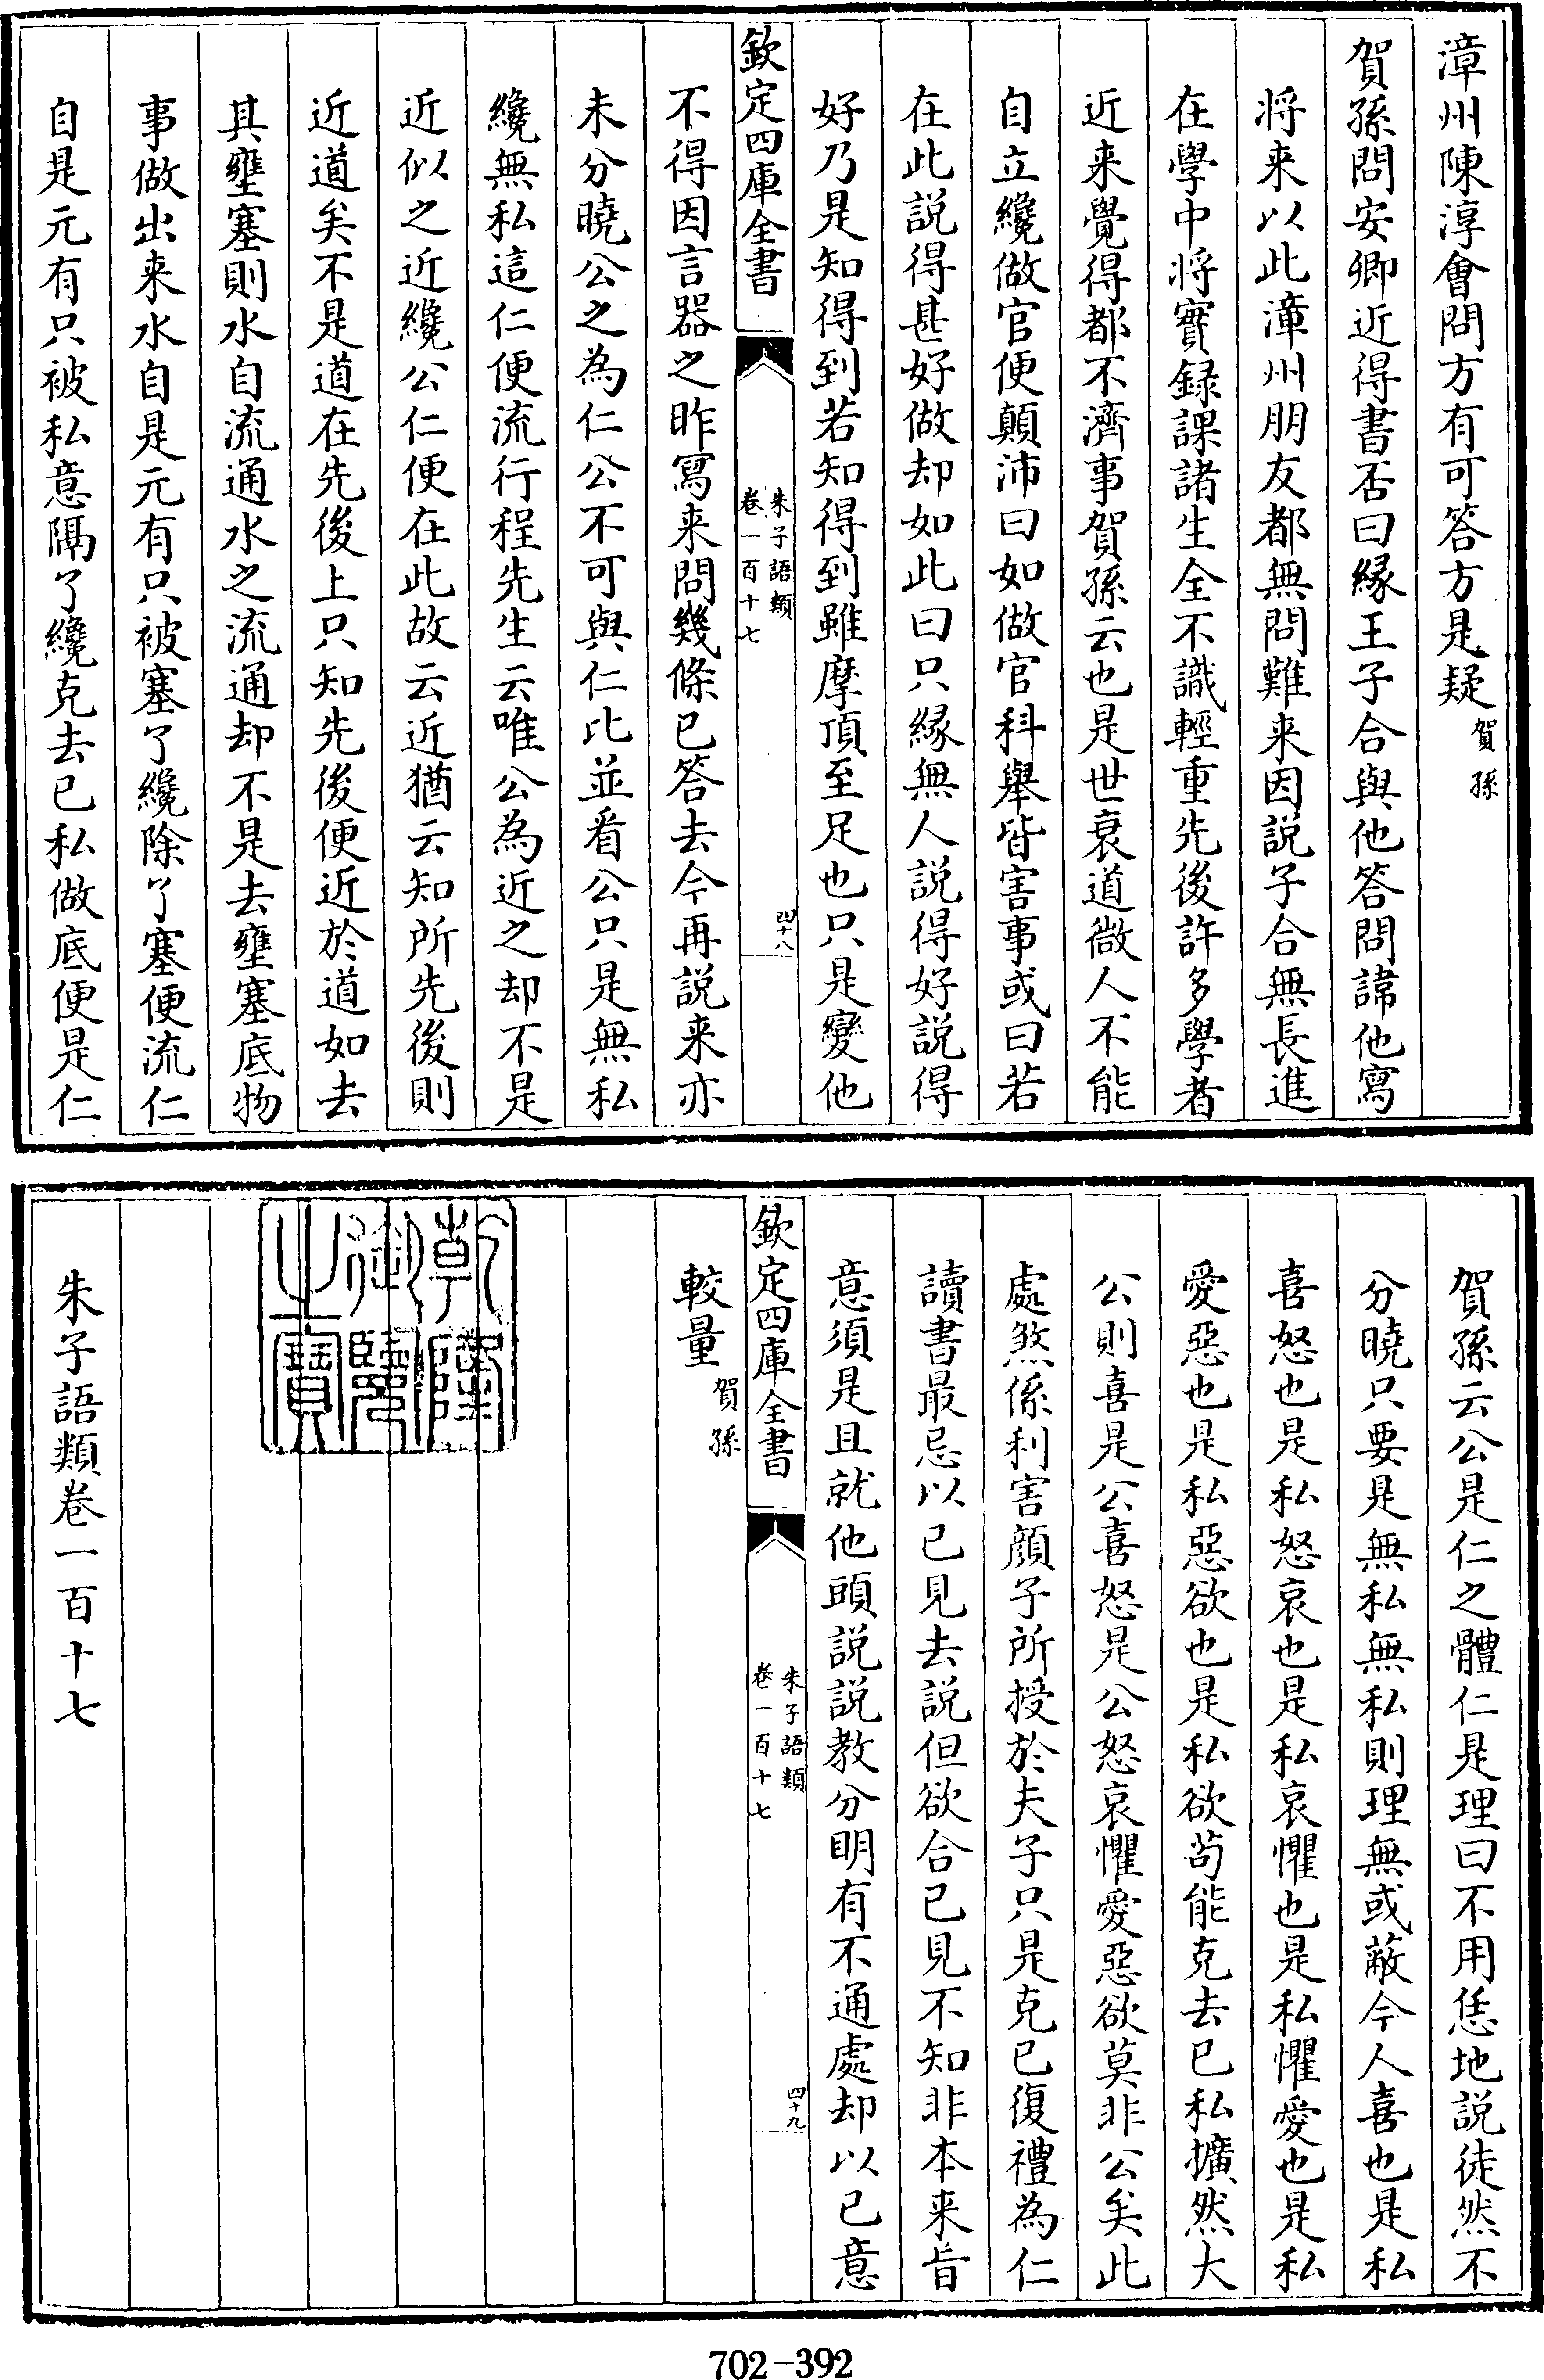 漳州陳淳會問方有可答方是疑賀孫
賀孫問安卿近得書否曰緣王子合與他答問諱他寫
將来以此漳州朋友都無問難来因説子合無長進
在學中將實録課諸生全不識輕重先後許多學者
近来覺得都不濟事賀孫云也是世衰道微人不能
自立纔做官便顛沛曰如做官科舉皆害事或曰若
在此説得甚好做却如此曰只緣無人説得好説得
好乃是知得到若知得到雖摩頂至足也只是變他
欽定四庫全書
朱子語類
卷一百十七
四十八
不得因言器之昨寫来問幾條已答去今再説来亦
未分曉公之為仁公不可與仁比並看公只是無私
纔無私這仁便流行程先生云唯公為近之却不是
近似之近纔公仁便在此故云近猶云知所先後則
近道矣不是道在先後上只知先後便近於道如去
其壅塞則水自流通水之流通却不是去壅塞底物
事做出来水自是元有只被塞了纔除了塞便流仁
自是元有只被私意隔了纔克去已私做底便是仁
賀孫云公是仁之體仁是理曰不用恁地説徒然不
分曉只要是無私無私則理無或蔽今人喜也是私
喜怒也是私怒哀也是私哀懼也是私懼愛也是私
愛惡也是私惡欲也是私欲苟能克去已私擴然大
公則喜是公喜怒是公怒哀懼愛惡欲莫非公矣此
處煞係利害顔子所授於夫子只是克已復禮為仁
讀書最忌以已見去説但欲合已見不知非本来旨
意須是且就他頭説説教分明有不通處却以已意
欽定四庫全書
朱子語類
卷一百十七
四十九
較量賀孫
乾隆
御覽
之寶
朱子語類卷一百十七
702-392